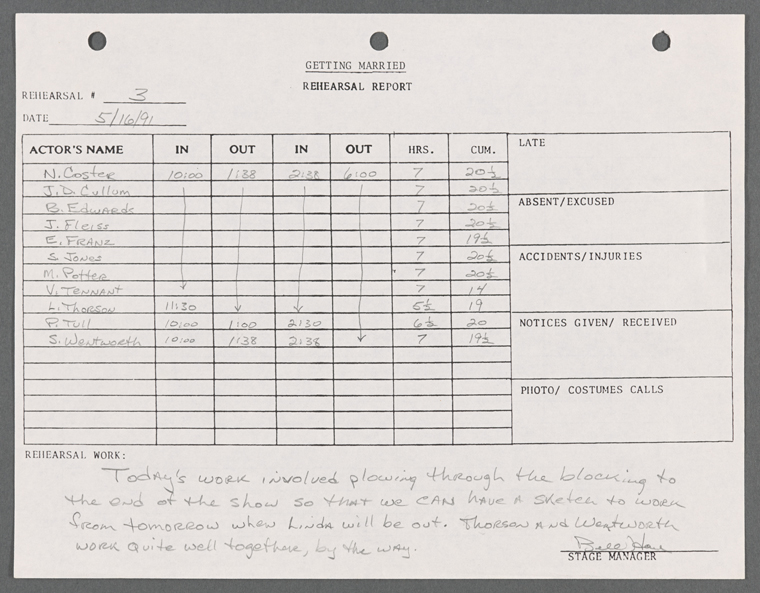 GETTING MARRIED
REHEARSAL REPORT
REHEARSAL # 3
DATE 5/16/91
ACTOR'S NAME IN OUT IN OUT HRS. CUM.
N. Coster 10:00 1:38 2:38 6:00 7 20½
J.D. Cullum 7 20½
B. Edwards 7 20½
J. Fleiss 7 20½
E. FRANZ 7 19½
S. Jones 7 20½
M. Potter 7 20½
V. TENNANT 7 14
L. THORSON 11:30 5½ 19
P. Tull 10:00 1:00 2:30 6½ 20
S. Wentworth 10:00 1:38 2:38 7 19½
LATE
ABSENT/EXCUSED
ACCIDENTS/INJURIES
NOTICES GIVEN/ RECEIVED
PHOTO/ COSTUMES CALLS
REHEARSAL WORK:
Today's work involved plowing through the blocking to
the end of the show so that we can have a sketch to work
from tomorrow when Linda will be out. Thorson and Wentworth
work quite well together, by the way.
STAGE MANAGER